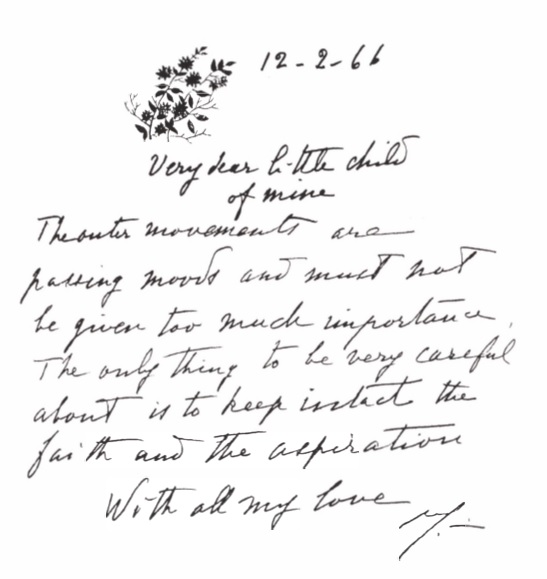 12-2-66
Very dear little child
of mine
The outer movements are
passing moods and must not
be given too much importance,
The only thing to be very careful
about is to keep intact the
faith and the aspiration
With all my love
M.